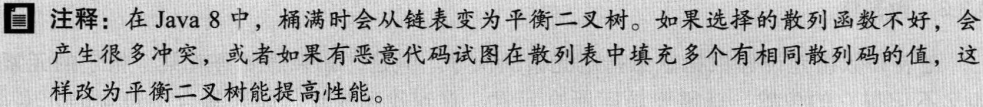 注释：在 Java 8 中，桶满时会从链表变为平衡二叉树。如果选择的散列函数不好，会
产生很多冲突，或者如果有恶意代码试图在散列表中填充多个有相同散列码的值，这
样改为平衡二叉树能提高性能。